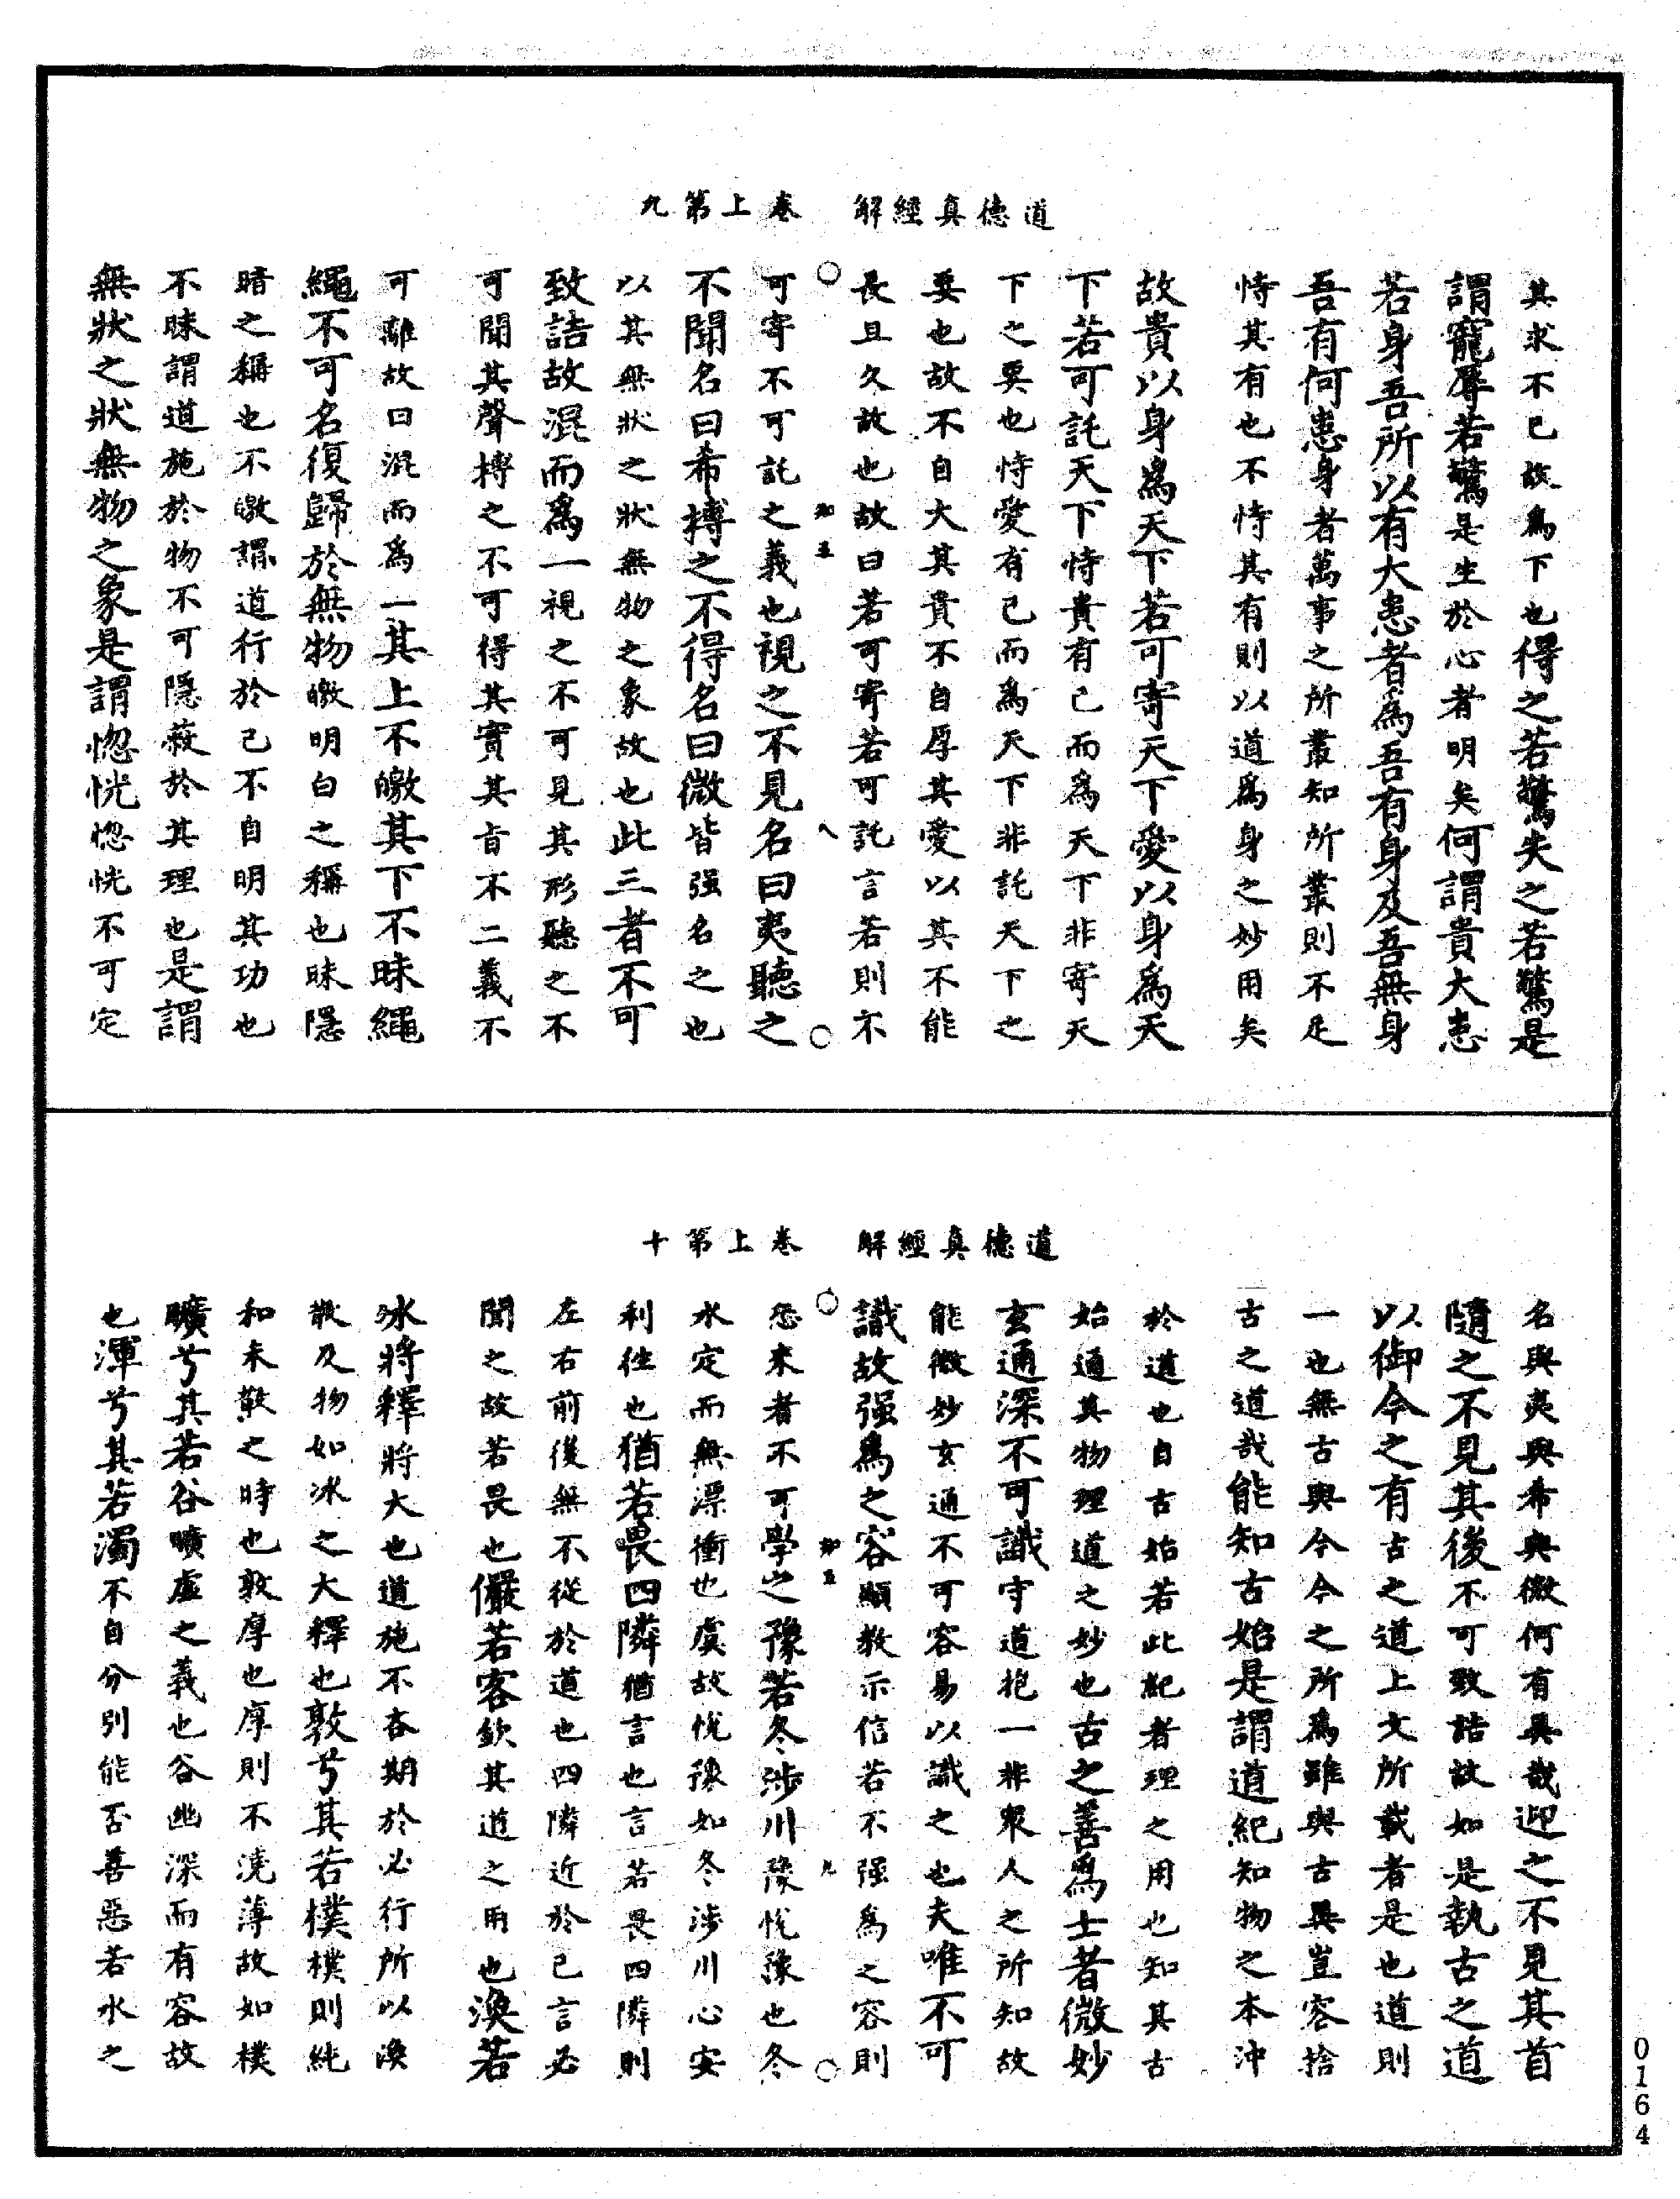 道德真經解　卷上第九
其求不已故爲下也得之若驚失之若驚是
謂寵辱若驚是生於心者明矣何謂貴大患
若身吾所以有大患者爲吾有身及吾無身
吾有何患身者萬事之所叢知所叢則不足
恃其有也不恃其有則以道爲身之妙用矣
故貴以身爲天下若可寄天下愛以身爲天
下若可託天下恃貴有己而爲天下非寄天
下之要也恃愛有己而爲天下非託天下之
要也故不自大其貴不自厚其愛以其不能
長且久故也故曰若可寄若可託言若則不
可寄不可託之義也視之不見名曰夷聽之
不聞名曰希搏之不得名曰微皆强名之也
以其無狀之狀無物之象故也此三者不可
致詰故混而爲一視之不可見其形聽之不
可聞其聲搏之不可得其實其旨不二義不
可離故曰混而爲一其上不皦其下不昧繩
繩不可名復歸於無物皦明白之稱也昧隱
暗之稱也不皦謂道行於己不自明其功也
不昧謂道施於物不可隱蔽於其理也是謂
無狀之狀無物之象是謂惚恍惚恍不可定
道德真經解　卷上第十
名與夷與希與微何有異哉迎之不見其首
隨之不見其後不可致詰故如是執古之道
以御今之有古之道上文所載者是也道則
一也無古與今今之所爲雖與古異豈容捨
古之道哉能知古始是謂道紀知物之本沖
於道也自古始若此紀者理之用也知其古
始通其物理道之妙也古之善爲士者微妙
玄通深不可識守道抱一非衆人之所知故
能微妙玄通不可容易以識之也夫唯不可
識故强爲之容顯教示信若不强爲之容則
怨來者不可學也豫若冬涉川豫悅豫也冬
水定而無漂衝也虞故悅豫如冬涉川心安
利往也猶若畏四隣猶言也言若畏四隣則
左右前後無不從於道也四隣近於己言必
聞之故若畏也儼若客欽其道之用也渙若
冰將釋將大也道施不吝期於必行所以渙
散及物如冰之大釋也敦兮其若樸樸則純
和未散之時也敦厚也厚則不澆薄故如樸
曠兮其若谷曠虛之義也谷幽深而有容故
也渾兮其若濁不自分別能否善惡若水之
0164